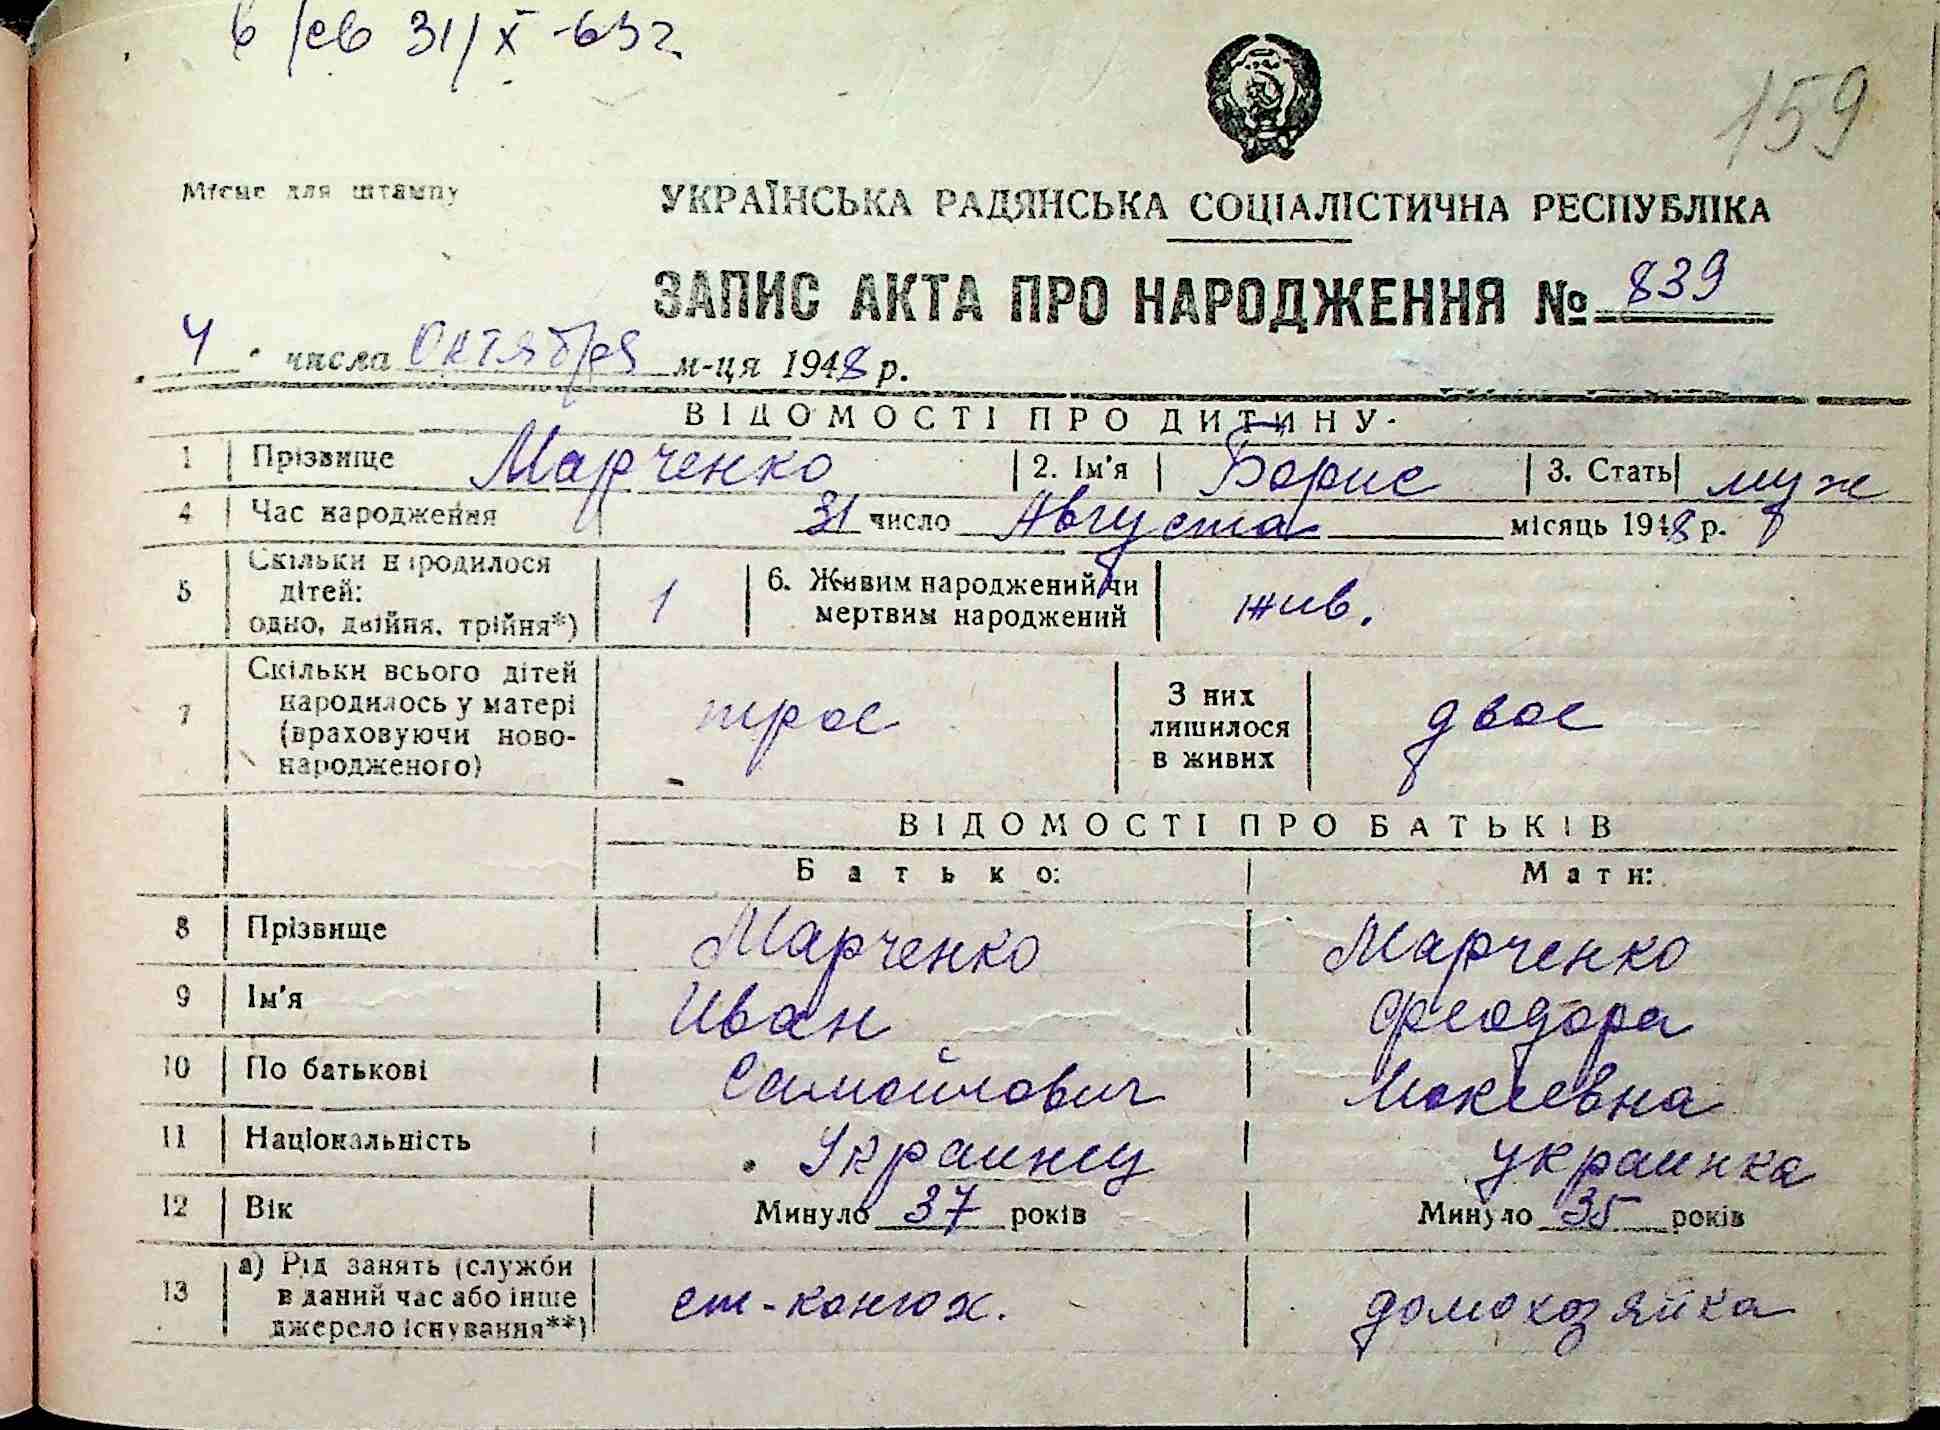 в/св 31/X-63г
159
Місце для штампу
УКРАЇНСЬКА РАДЯНСЬКА СОЦІАЛІСТИЧНА РЕСПУБЛІКА
ЗАПИС АКТА ПРО НАРОДЖЕННЯ № 839
4 числа Октября м-ця 1948 р.
ВІДОМОСТІ ПРО ДИТИНУ
1 Прізвище Марченко 2. Ім'я Борис 3. Стать муж
4 Час народження 31 число Августа місяць 1948 р.
5 Скільки народилося дітей: одно, двійня, трійня*) 1 6. Живим народжений чи мертвим народжений жив.
7 Скільки всього дітей народилось у матері (враховуючи новонародженого) трое З них лишилося в живих двое
ВІДОМОСТІ ПРО БАТЬКІВ
Батько: Мати:
8 Прізвище Марченко Марченко
9 Ім'я Иван Феодора
10 По батькові Самойлович Мокеевна
11 Національність Украинец украинка
12 Вік Минуло 37 років Минуло 35 років
13 а) Рід занять (служби в даний час або інше джерело існування**) ст-конюх. домохозяйка